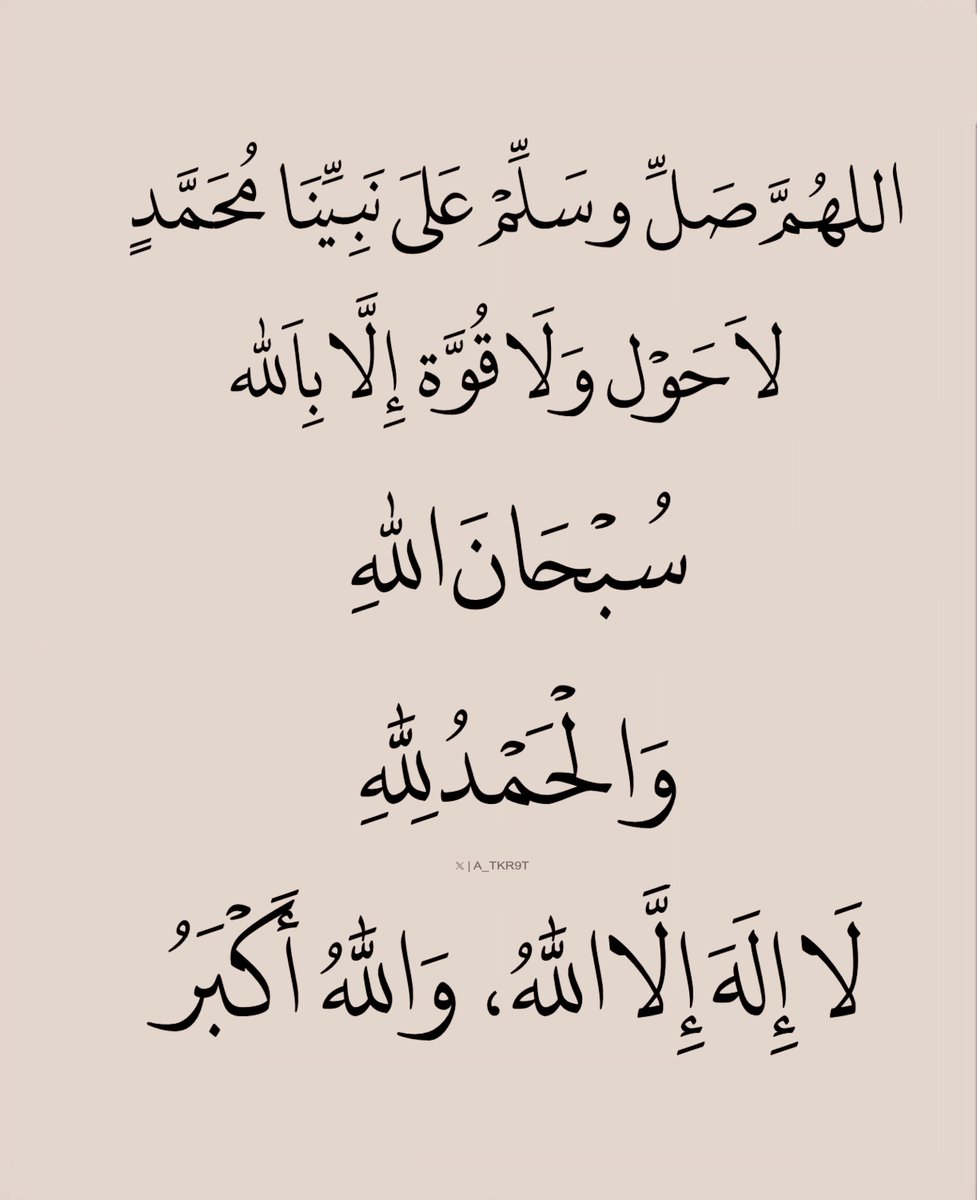 اللهُمَّ صَلِّ وسَلِّمْ عَلىَ نَبِيِّنَا مُحَمَّدٍ
لاَ حَوْل وَلَا قُوَّة إِلَّا بِاَلله
سُبْحَانَ اللهِ
وَالْحَمْدُ لِلَّهِ
𝕏 | A_TKR9T
لَا إِلَهَ إِلَّا اللَّهُ، وَاللَّهُ أَكْبَرُ